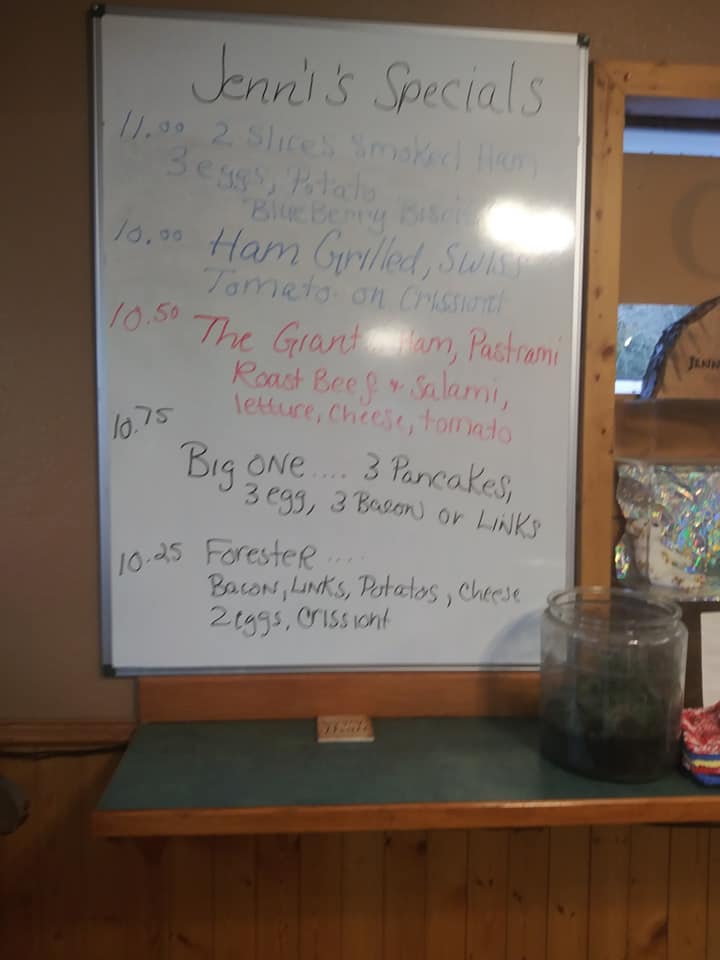 Jenni's Specials
11.00 2 Slices Smoked Ham
3 eggs, Potato
BlueBerry
10.00 Ham Grilled, Swiss
Tomato on Crissiont
10.50 The Giant Ham, Pastrami
Roast Beef & Salami,
letture, cheese, tomato
10.75
Big ONE .... 3 Pancakes,
3 egg, 3 Bacon or LINKS
10.25 Forester ....
Bacon, LINKS, Potatos, Cheese
2 eggs, Crissiont
JENN